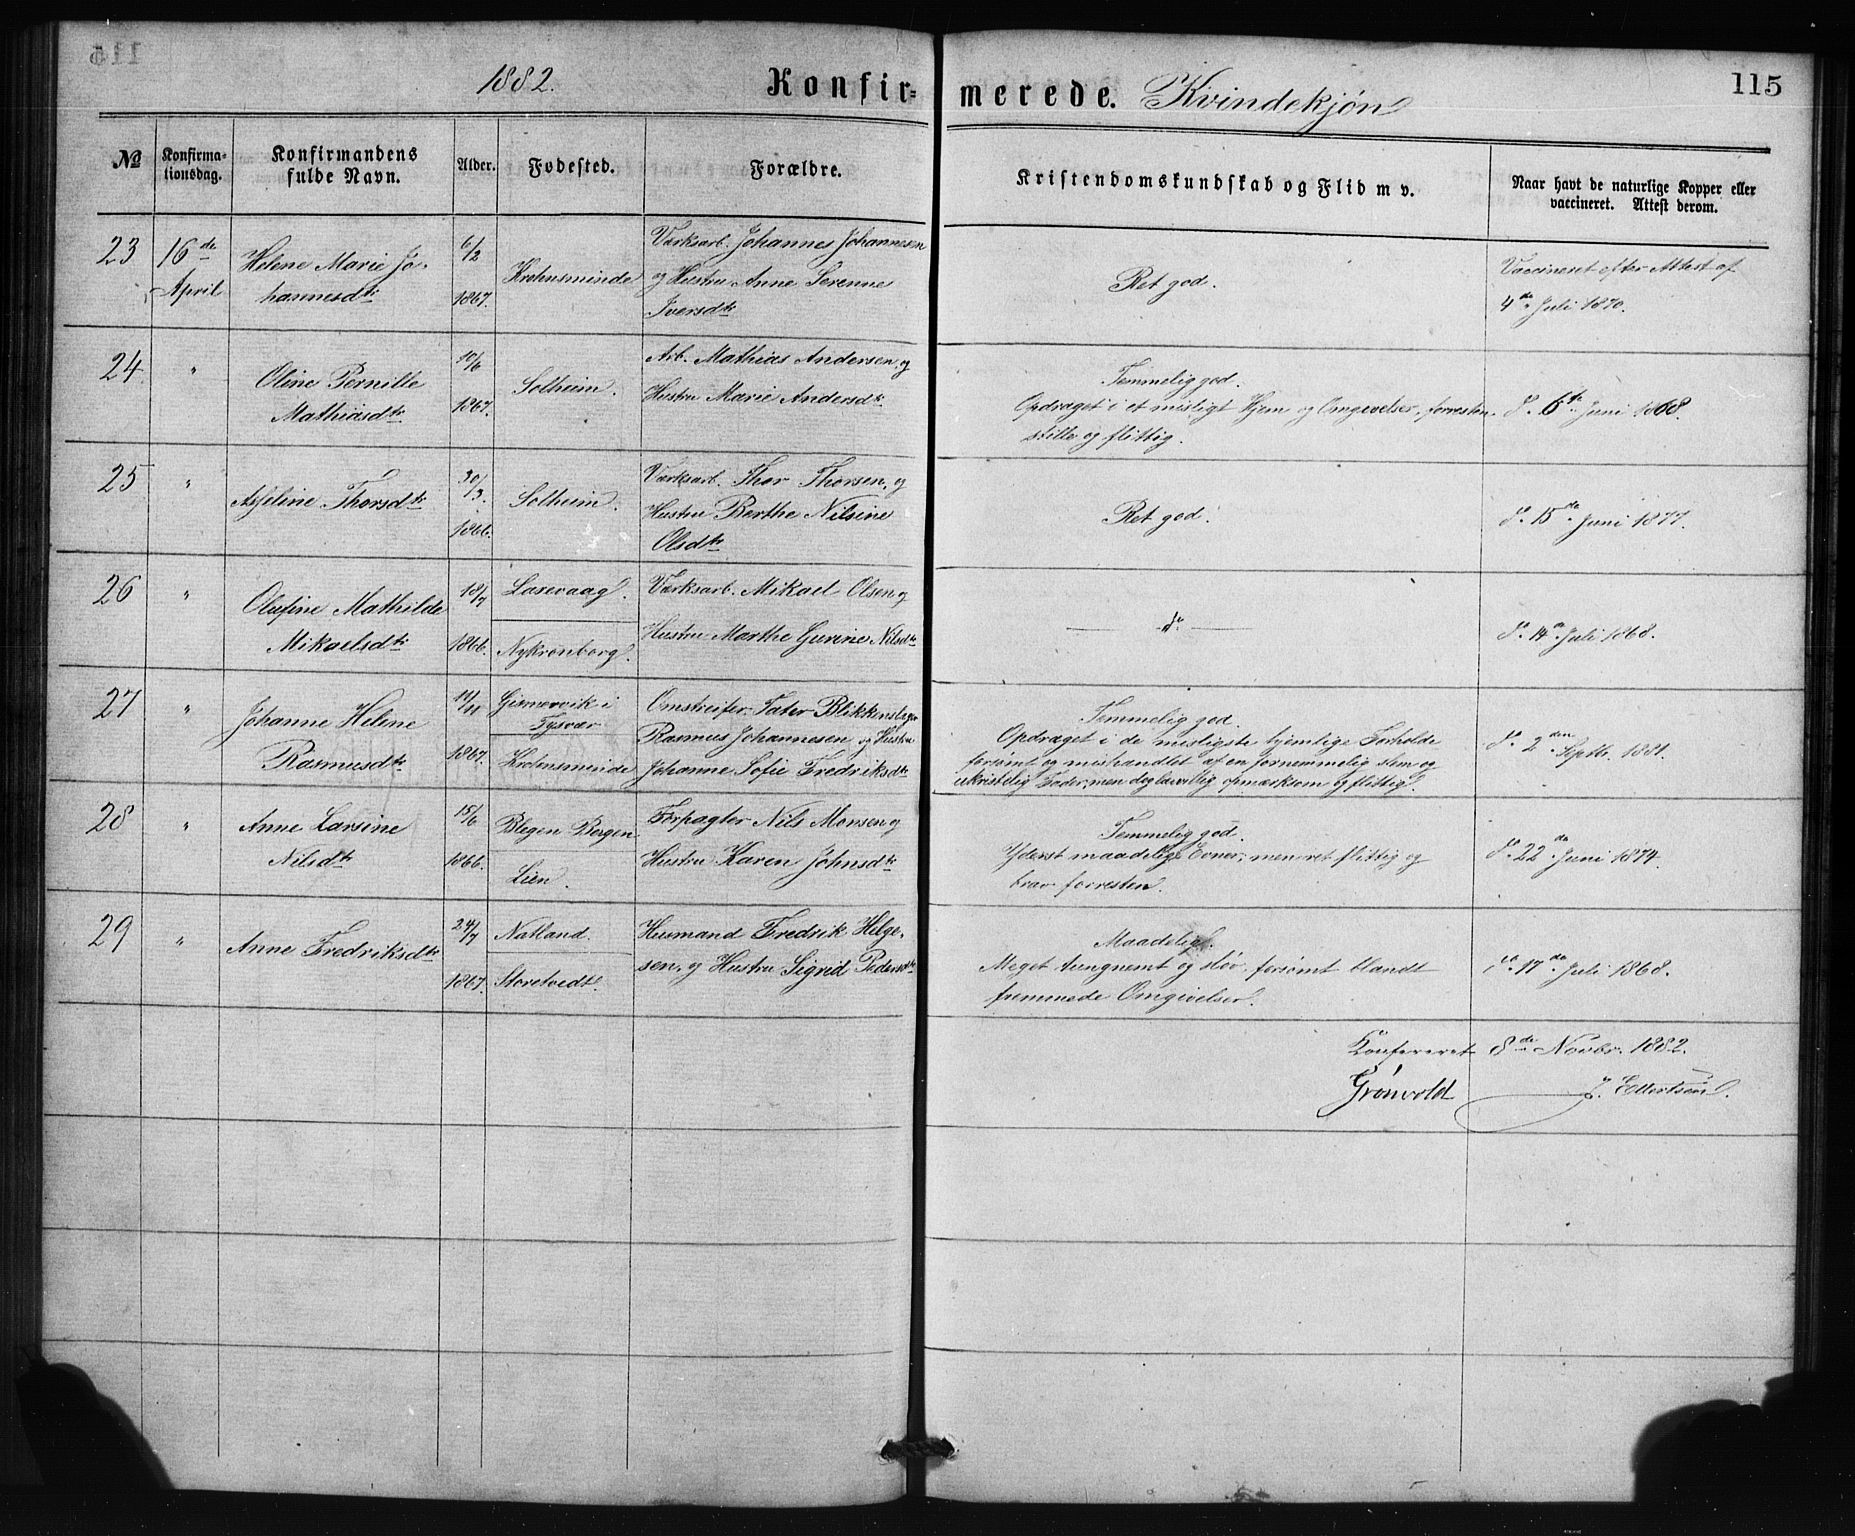 1882. Konfirmerede. Kvindekjøn 115
No Konfirmationsdag. Konfirmandens fulde Navn. Alder. Fødested. Forældre. Kristendomskundskab og Flid m v. Naar havt de naturlige Kopper eller vaccineret. Attest derom.
23 16de April Helene Marie Jo-
hannesdtr 6/2 1867. Krohnsminde Værksarb. Johannes Johannesen
og Hustru Anne Serenne
Iversdtr
Ret god.
Vaccineret efter Attest af
4de Juli 1870.
24. " Oline Pernille
Mathiasdtr 10/6 1867. Solheim. Arb. Mathias Andersen og
Hustru Marie Andersdtr
Temmelig god.
Opdraget i et misligt Hjem og Omgivelser, forresten
stille og flittig.
do 6te Juni 1868.
25 " Thorsdtr 30/3. 1866. Solheim. Værksarb. Thor Thorsen, og
Hustru Berthe Nilsine
Olsdtr
Ret god.
do 15de Juni 1877.
26 " Olufine Mathilde
Mikaelsdtr 18/7 1866. Laxevaag.
Nykronborg. Værksarb. Mikael Olsen og
Hustru Marthe Gurine Nilsdtr
— do —
do 14de Juli 1868.
27 " Johanne Helene
Rasmusdtr 11/11 1867. Gismervik i
Tysvær
Krohnsminde Omstreifer Tater Blikkenslager
Rasmus Johannesen og Hustru
Johanne Sofie Fredriksdtr
Temmelig god.
Opdraget i de misligste hjemlige Forholde
forsømt og mishandlet af en fornemmelig slem og
ukristelig Fader, men opmærksom og flittig.
do 2den Septb. 1881.
28 " Anne Larsine
Nilsdtr 15/6 1866. Blegen Bergen
Lien. Forpagter Nils Monsen og
Hustru Karen Johnsdtr
Temmelig god.
Yderst maadelige Evner, men ret flittig og
brav forresten.
do 22de Juni 1874.
29 " Anne Fredriksdtr 24/7 1867. Natland.
Storetvedt. Husmand Fredrik Helge-
sen, og Hustru Sigrid Pedersdtr
Maadelig.
Meget tungnemt og sløv, forsømt blandt
fremmede Omgivelser.
do 17de Juli 1868.
Konfereret 8de Novbr. 1882.
Grønvold J. Ellertsen.